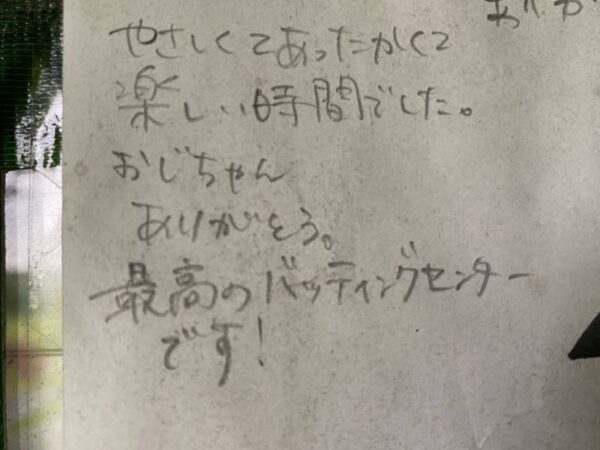 やさしくてあったかくて
楽しい時間でした。
おじちゃん
ありがとう。
最高のバッティングセンター
です!